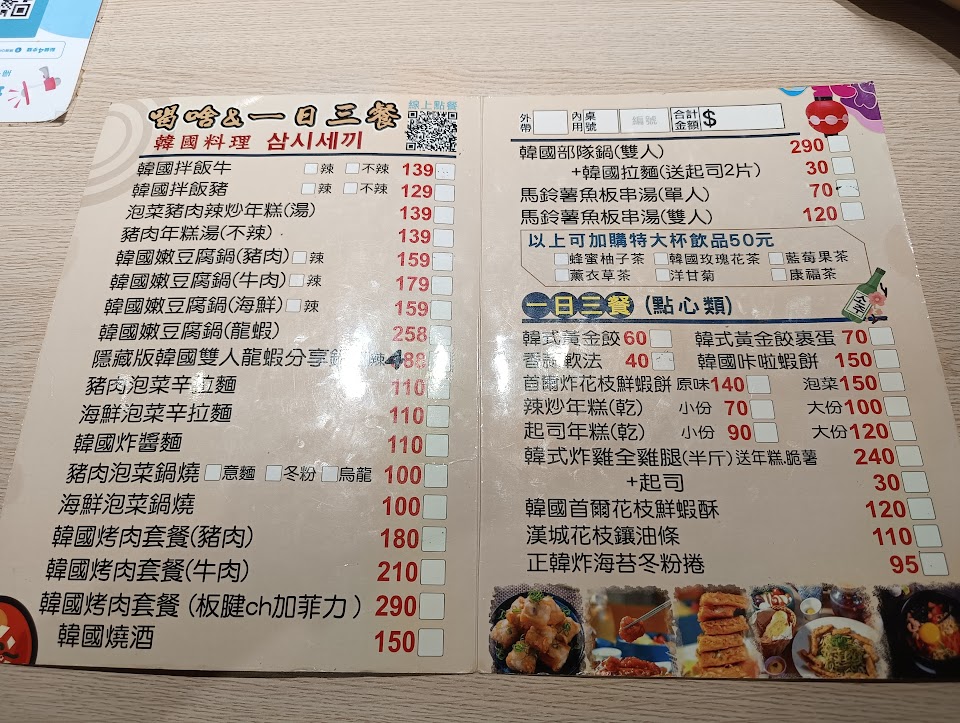 喝啥&一日三餐
線上點餐
韓國料理 삼시세끼
韓國拌飯牛 辣 不辣 139
韓國拌飯豬 辣 不辣 129
泡菜豬肉辣炒年糕(湯) 139
豬肉年糕湯(不辣) 139
韓國嫩豆腐鍋(豬肉) 辣 159
韓國嫩豆腐鍋(牛肉) 辣 179
韓國嫩豆腐鍋(海鮮) 辣 159
韓國嫩豆腐鍋(龍蝦) 258
隱藏版韓國雙人龍蝦分享鍋 辣 488
豬肉泡菜辛拉麵 110
海鮮泡菜辛拉麵 110
韓國炸醬麵 110
豬肉泡菜鍋燒 意麵 冬粉 烏龍 100
海鮮泡菜鍋燒 100
韓國烤肉套餐(豬肉) 180
韓國烤肉套餐(牛肉) 210
韓國烤肉套餐(板腱ch加菲力) 290
韓國燒酒 150
外帶 內用 桌號 編號 合計金額 $
韓國部隊鍋(雙人) 290
+韓國拉麵(送起司2片) 30
馬鈴薯魚板串湯(單人) 70
馬鈴薯魚板串湯(雙人) 120
以上可加購特大杯飲品50元
蜂蜜柚子茶 韓國玫瑰花茶 藍莓果茶
薰衣草茶 洋甘菊 康福茶
一日三餐 (點心類)
韓式黃金餃 60 韓式黃金餃裹蛋 70
香 軟法 40 韓國咔啦蝦餅 150
首爾炸花枝鮮蝦餅 原味 140 泡菜 150
辣炒年糕(乾) 小份 70 大份 100
起司年糕(乾) 小份 90 大份 120
韓式炸雞全雞腿(半斤)送年糕.脆薯 240
+起司 30
韓國首爾花枝鮮蝦酥 120
漢城花枝鑲油條 110
正韓炸海苔冬粉捲 95